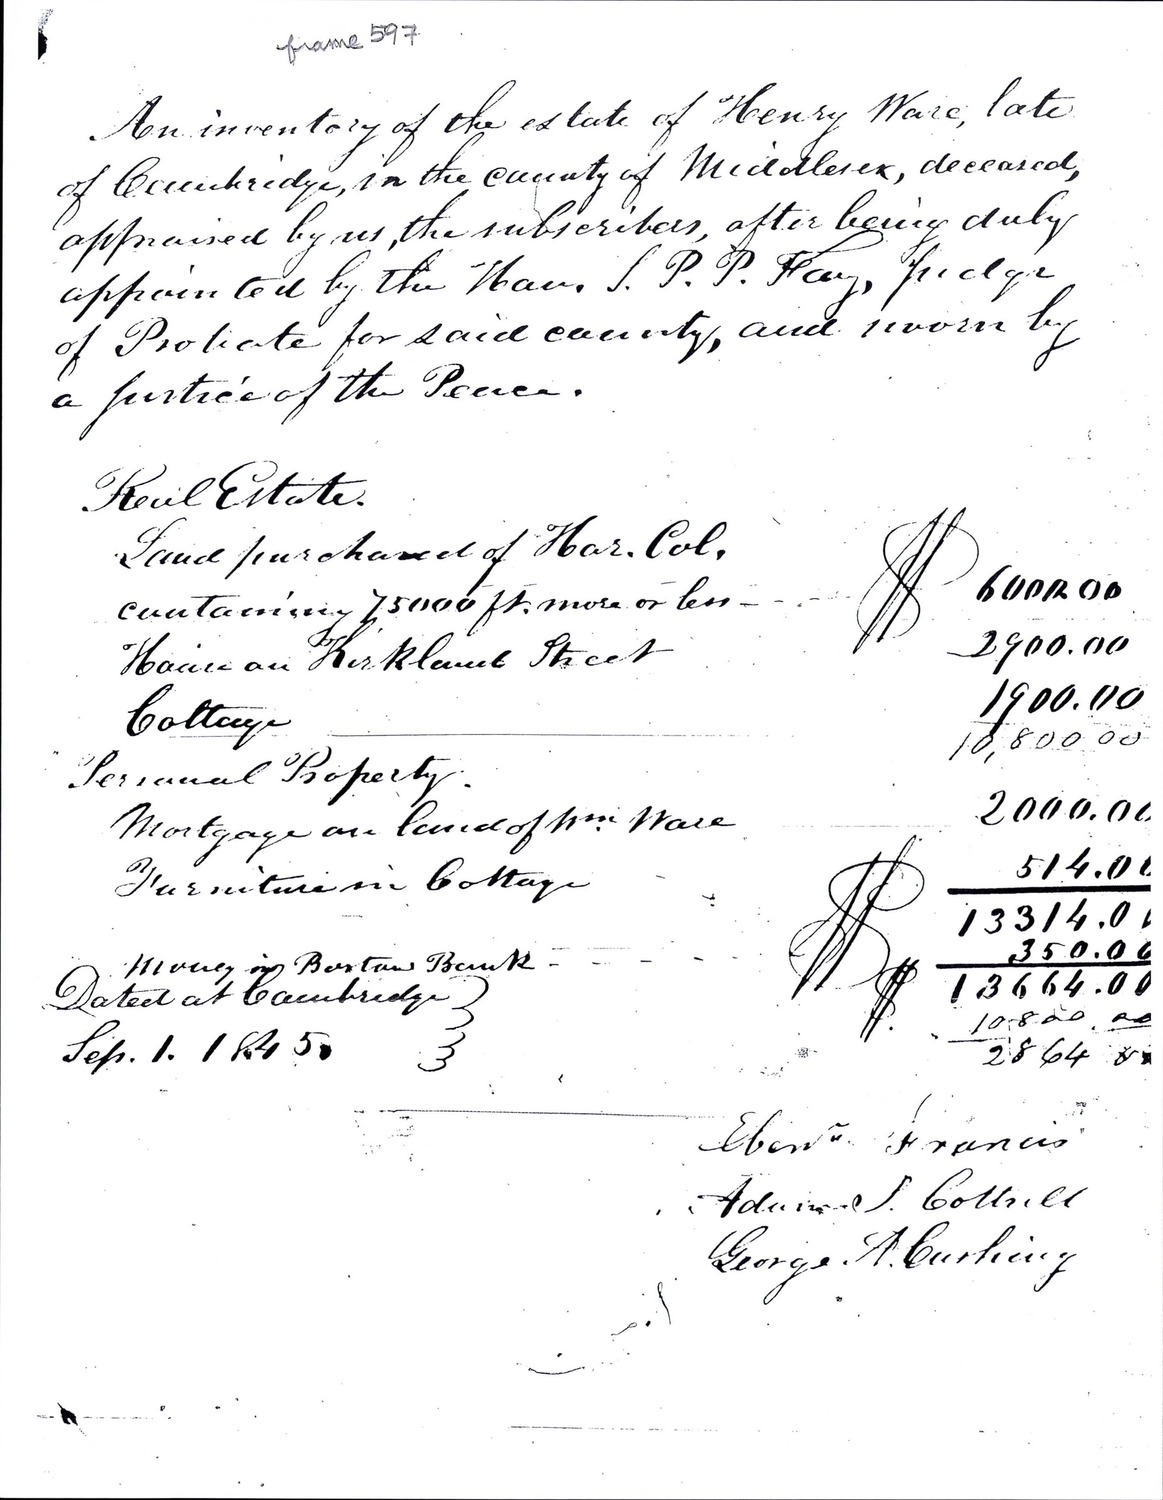 frame 597
An inventory of the estate of Henry Ware, late
of Cambridge, in the county of Middlesex, deceased,
appraised by us, the subscribers, after being duly
appointed by the Hon. S. P. P. Fay, Judge
of Probate for said county, and sworn by
a Justice of the Peace.
Real Estate.
Land purchased of Har. Col.
containing 75000 ft. more or less - - - $ 6000.00
House on Kirkland Street 2900.00
Cottage 1900.00
10,800 00
Personal Property.
Mortgage on land of Wm Ware 2000.00
Furniture in Cottage 514.00
$ 13314.00
Money in Boston Bank - - - - 350.00
Dated at Cambridge $ 13664.00
10800.00
Sep. 1. 1845. 2864
Ebenr Francis
S. Cottrell
George A. Cushing